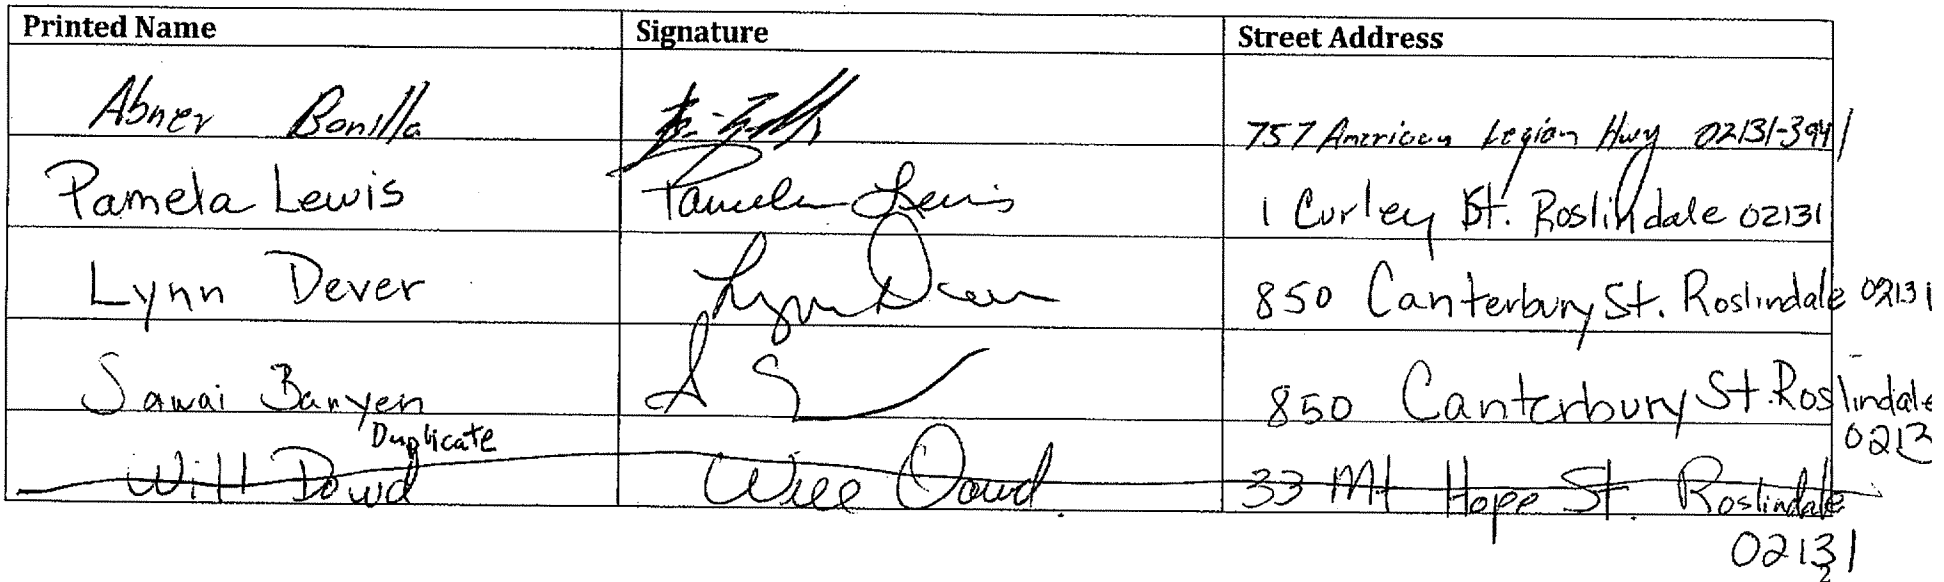 Printed Name Signature Street Address
Abner Bonilla 757 American Legion Hwy 02131-3941
Pamela Lewis Pamela Lewis 1 Curley St. Roslindale 02131
Lynn Dever Lynn Dever 850 Canterbury St. Roslindale 02131
Sawai Banyen 850 Canterbury St. Roslindale
0213
Duplicate
Will Dowd Will Dowd 33 Mt Hope St. Roslindale
02131
2